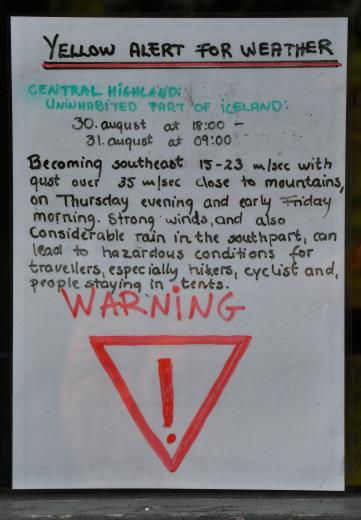 YELLOW ALERT FOR WEATHER
CENTRAL HIGHLAND:
UNINHABITED PART OF ICELAND:
30. august at 18:00 –
31. august at 09:00
Becoming southeast 15-23 m/sec with
gust over 35 m/sec close to mountains,
on Thursday evening and early Friday
morning. Strong winds, and also
considerable rain in the southpart, can
lead to hazardous conditions for
travellers, especially hikers, cyclist and,
people staying in tents.
WARNING
!